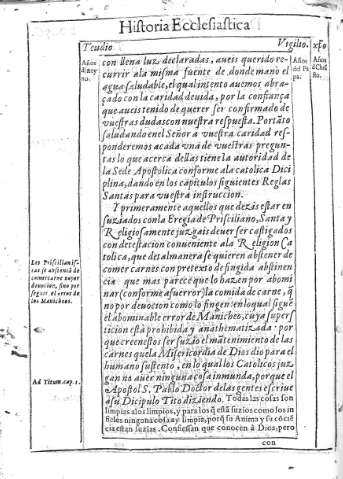 Historia Ecclesiastica
Teudio Vigilio. xpo
Años de Reyno. Años del Papa. Años de Christo.
con llena luz declaradas, aueis querido re-
currir a la misma fuente de donde mano el
agua saludable, el qual intento auemos abra-
çado con la caridad deuida, por la confiança
que aueis tenido de querer ser confirmado de
vuestras dudas con nuestra respuesta. Por tãto
saludando en el Señor à vuestra caridad res-
ponderemos a cada vna de vuestras pregun-
tas lo que acerca dellas tiene la autoridad de
la Sede Apostolica conforme a la catolica Dici-
plina, dando en los capitulos siguientes Reglas
Santas para vuestra instruccion.
Y primeramente aquellos que dezis estar en
suziados con la Eregia de Prisciliano, Santa y
Religiosamente juzgais deuer ser castigados
con detestacion conueniente a la Religion Ca
tolica, que dital manera se quieren abstener de
comer carnes con pretexto de fingida abstinẽ
cia que mas parece que lo hazen por abomi
nar (conforme a su error) la comida de carne, q̃
no por deuocion como lo fingen: en lo qual sigue
el abominable error de Manicheo, cuya super-
sticion està prohibida y anathematizada: por
que creen estos ser suzio el mãtenimiento de las
carnes que la Misericordia de Dios dio para el
humano sustento, en lo qual los Catolicos juz
gan no auer ninguna cosa inmunda, porque el
Apostol S. Pablo Doctor de las gentes escriue
a su Dicipulo Tito diziendo. Todas las cosas son
limpias a los limpios, y para los q̃ està suzios como los in
fieles ninguna cosa ay limpia, porq̃ su Anima y su cõciẽ
cia estan suzias. Confiessan que conocen à Dios, pero
con
Los Priscillianis-
tas se abstenia de
comer carne no por
deuocion, sino por
seguir el error de
los Manicheos.
Ad Titum. cap. 1.